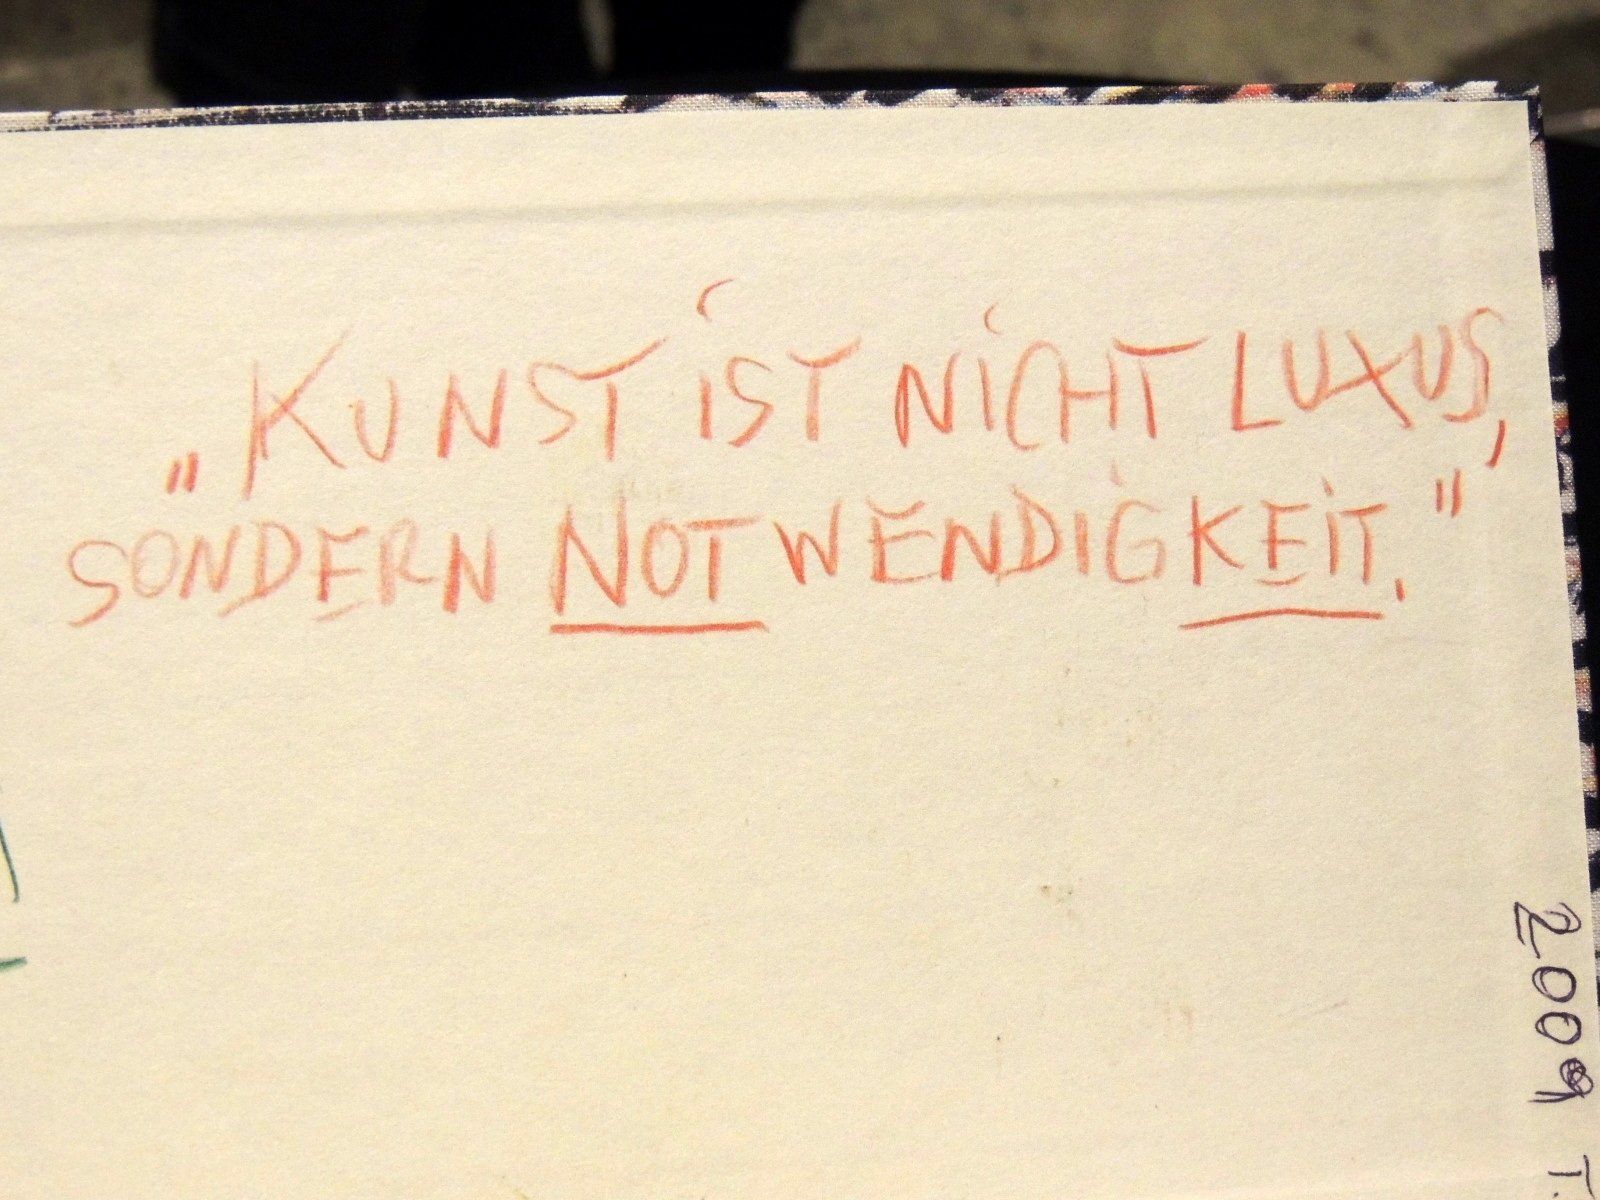 „KUNST iST NiCHT LUXUS,
SONDERN NOTWENDiGKEiT."
2009 T.